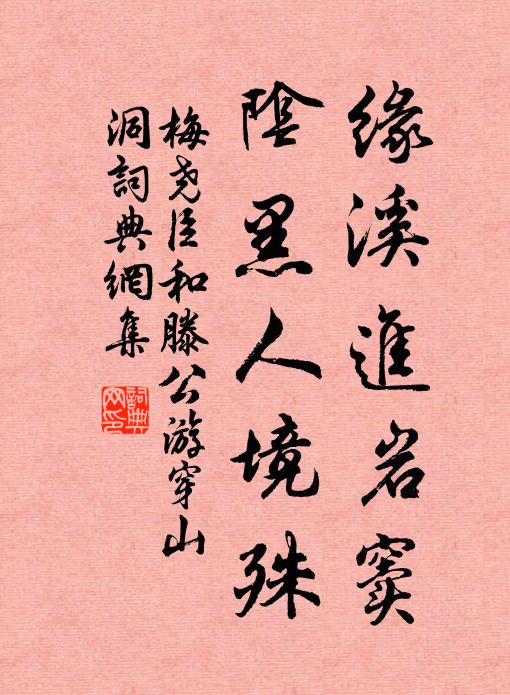 緣溪進岩竇
陰黑人境殊
梅尧臣和滕公游穿山
洞詞典網集
詞典
网印